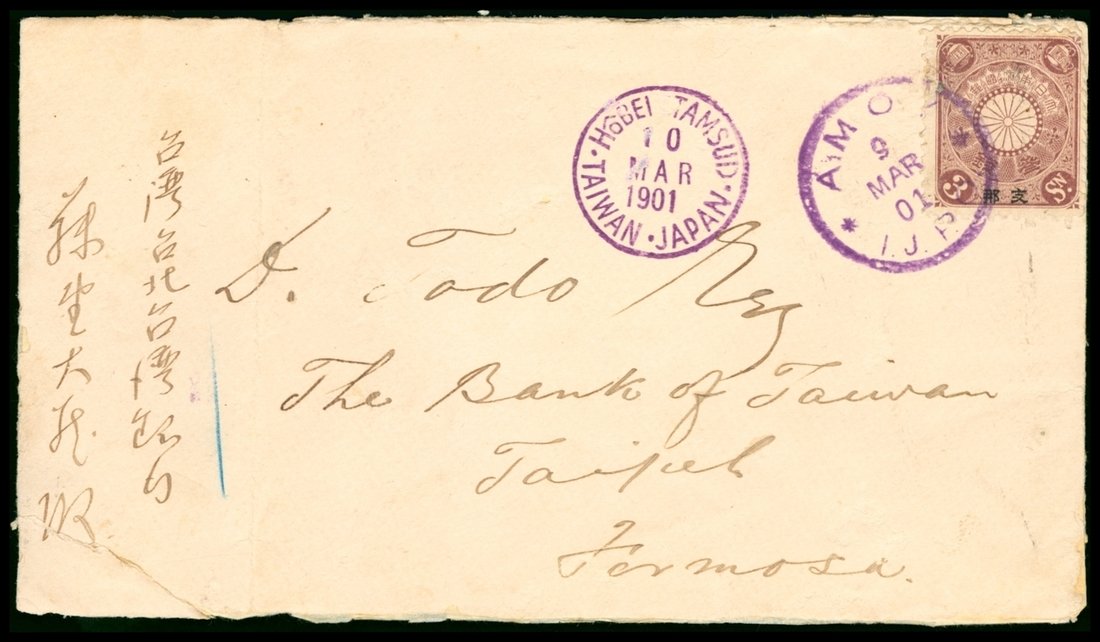 HōBEI (TAMSUI)
10
MAR
1901
TAIWAN · JAPAN
AMOY
9
MAR
01
I.J.P.
3 Sn.
支那
D. Todo Esq
The Bank of Taiwan
Taipeh
Formosa.
台湾台北台湾銀行
藤堂